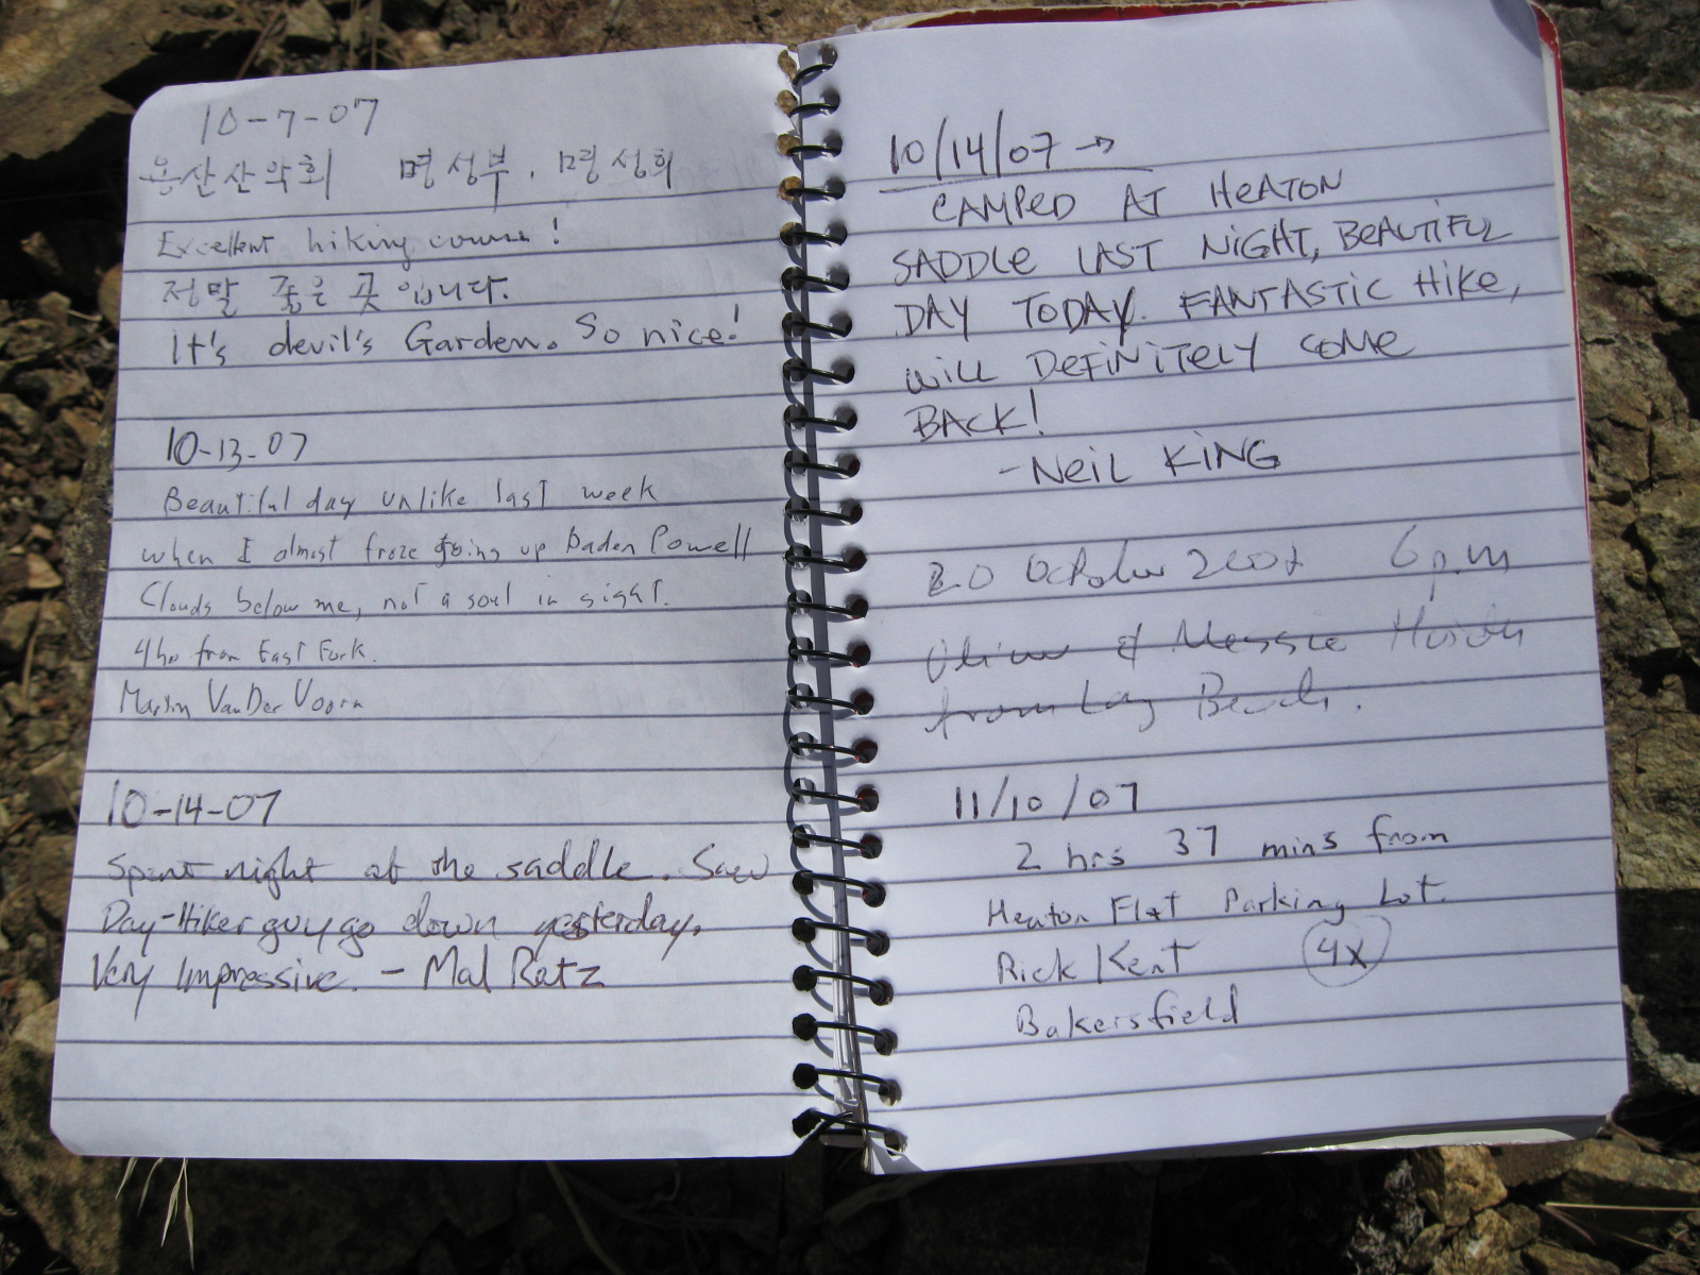 10-7-07
용산산악회 명성부, 명성희
Excellent hiking course!
정말 좋은 곳 입니다.
It's devil's Garden. So nice!
10-13-07
Beautiful day unlike last week
when I almost froze going up Baden Powell
Clouds below me, not a soul in sight.
4hr from East Fork.
Martin VanDer Voorn
10-14-07
Spent night at the saddle. Saw
Day-Hiker guy go down yesterday.
Very Impressive. - Mal Ratz
10/14/07 →
CAMPED AT HEATON
SADDLE LAST NIGHT, BEAUTIFUL
DAY TODAY. FANTASTIC HIKE,
WILL DEFINITELY COME
BACK!
- NEIL KING
20 October 2007 6 p.m
&
from Beach.
11/10/07
2 hrs 37 mins from
Heaton Flat Parking Lot.
Rick Kent 4x
Bakersfield